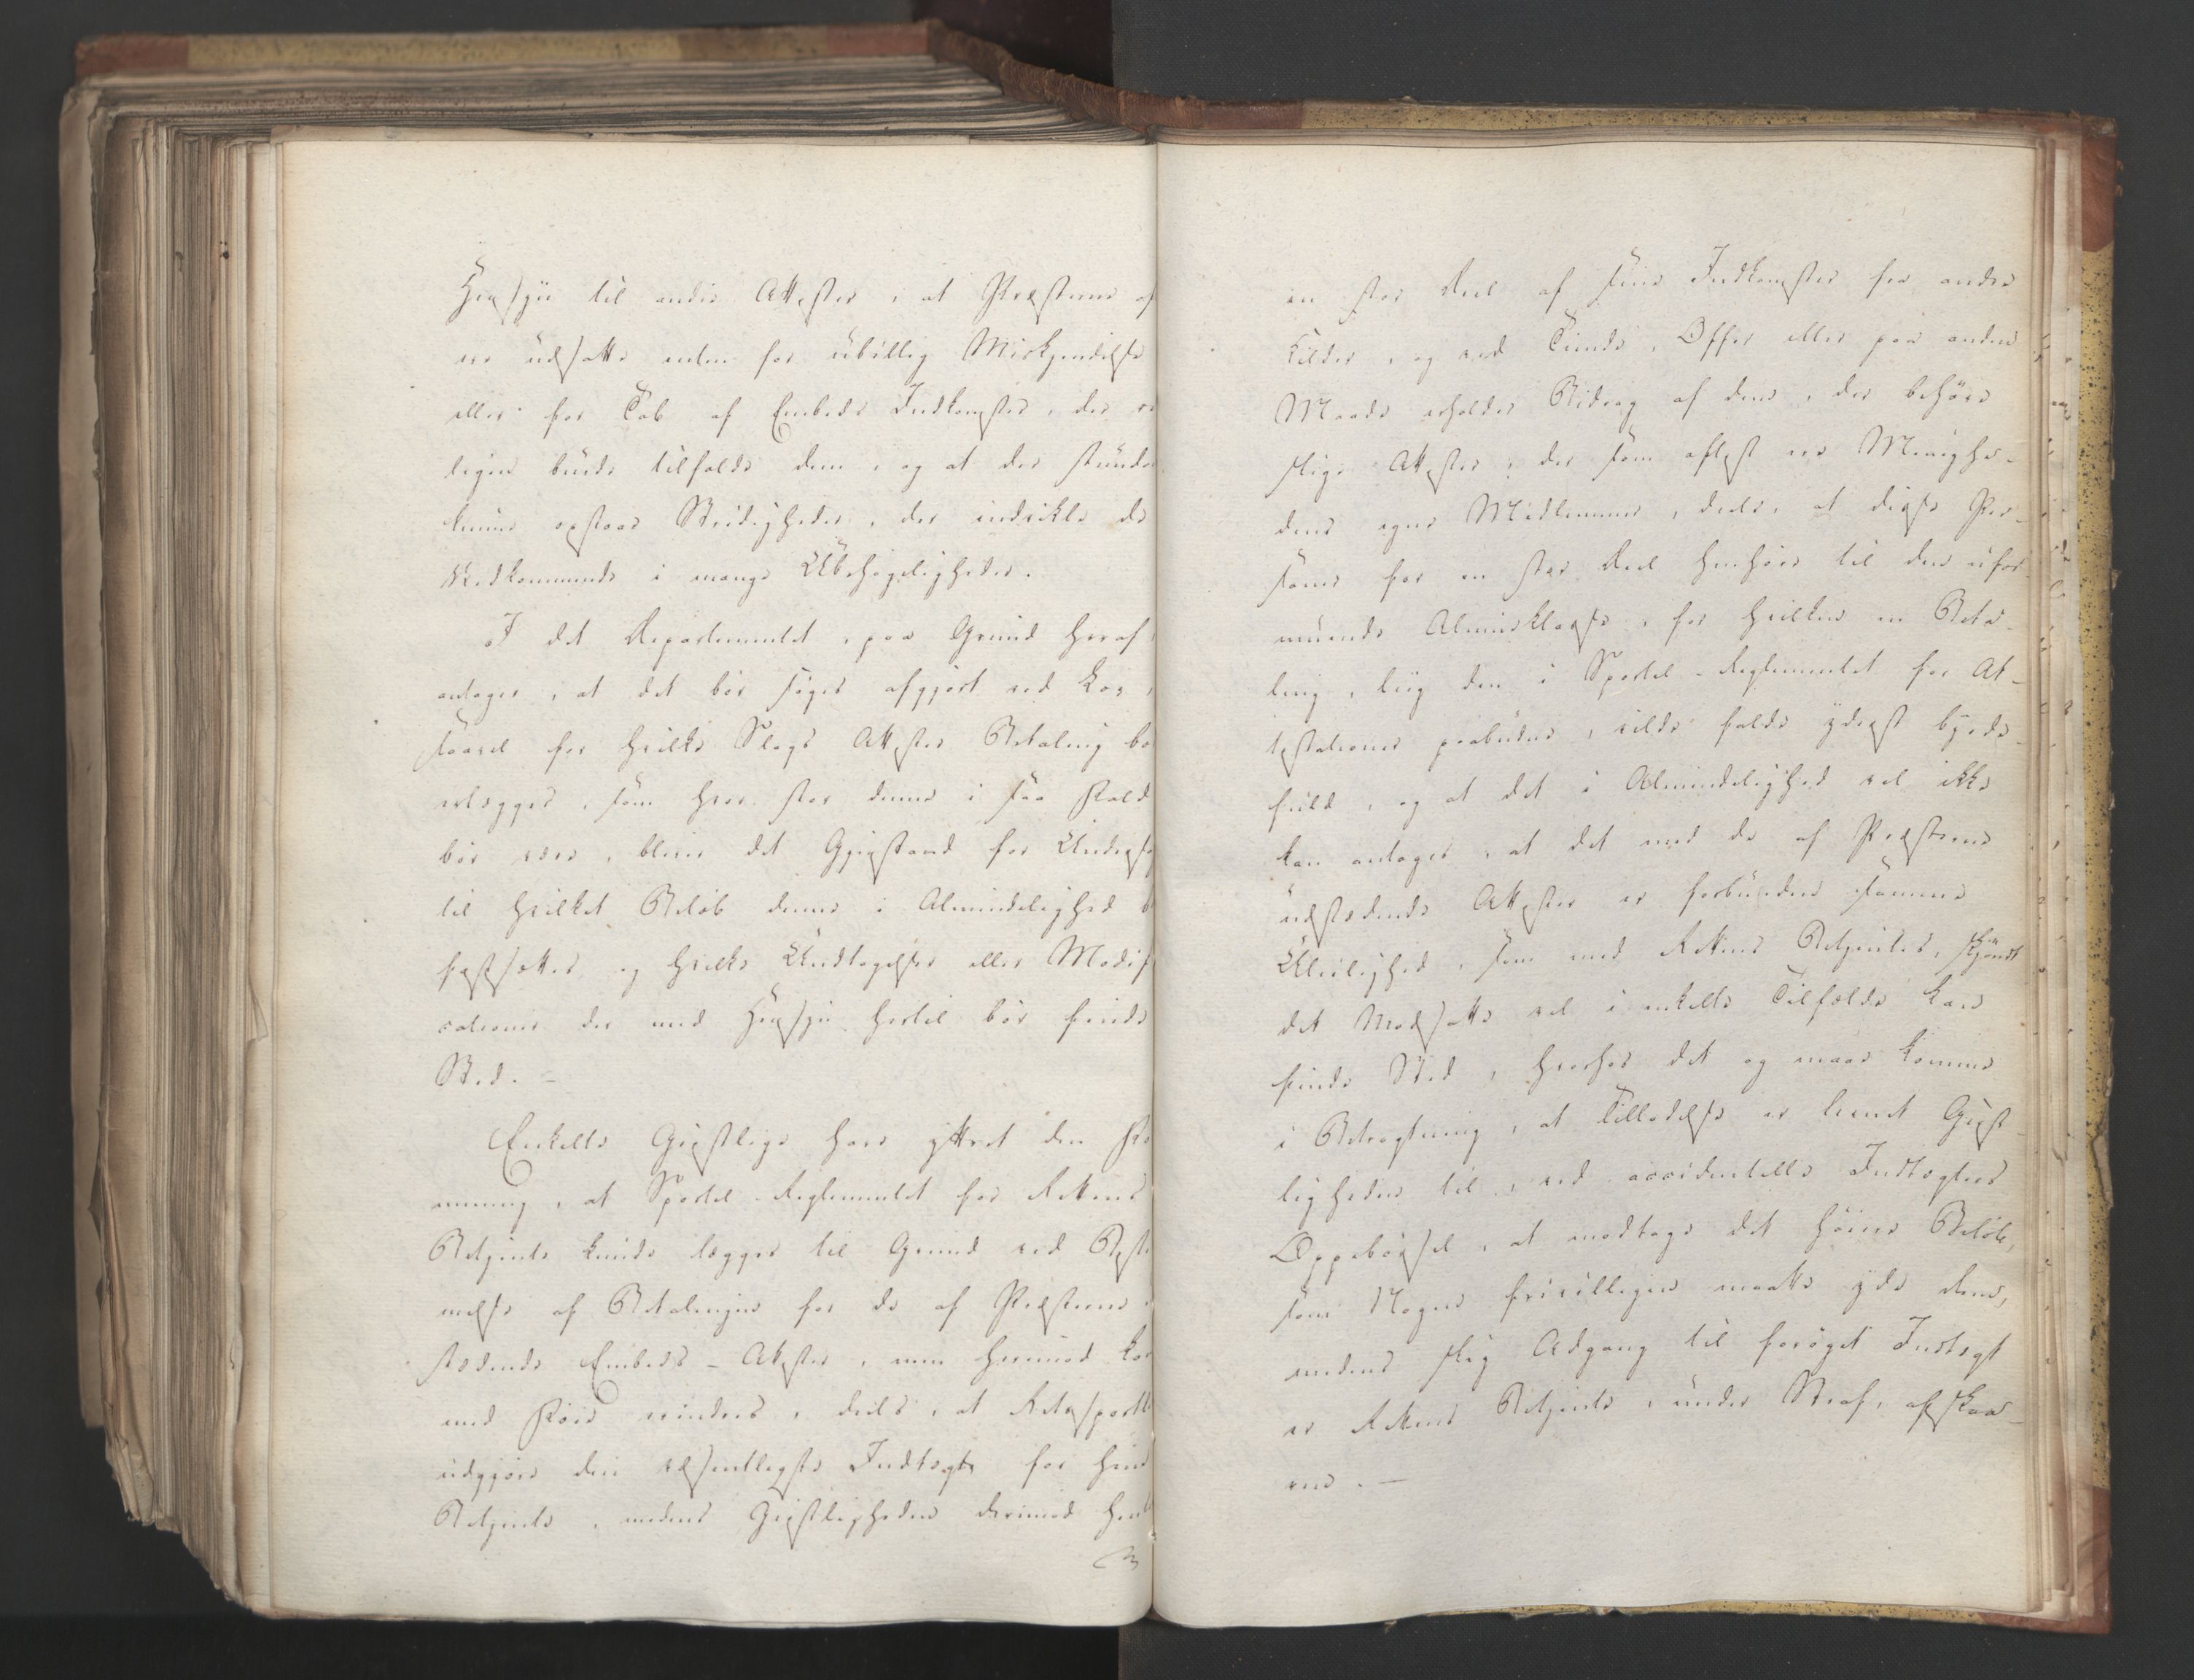 Hensyn til andre Attester, at Præsterne of
ere udsatte enten for ubillig Miskjendelse
eller for Tab af Embeds Indkomster, der re
ligen burde tilfalde dem, og at der stundom
kunne opstaae Stridigheder, der indvikle de
Vedkommende i mange Ubehageligheder.
I det Departementet, paa Grund heraf,
antager, at det bør søges afgjort ved Lov,
saavel for hvilke Slags Attester Betaling bø
erlægges, som hvor stor denne i saa Fald
bør være, bliver det Gjenstand for Undersø
til hvilket Beløb denne i Almindelighed b
fastsættes og hvilke Undtagelser eller Modif
cationer der med Hensyn hertil bør finde
Sted. –
Enkelte Geistlige have yttret den Fo
mening, at Sportel-Reglementet for Rettens
Betjente kunde lægges til Grund ved Beste
melse af Betalingen for de af Præsterne u
stædende Embeds-Attester, men herimod kan
med Føie erindres, deels, at Retssportl
udgjøre den væsentligste Indtægt for hine
Betjente, medens Geistligheden derimod hen
en stor Deel af sine Indkomster fra andre
Kilder, og ved Tiende, Offer eller paa anden
Maade erholder Bidrag af dem, der behøve
slige Attester, der som oftest ere Menighe-
dens egne Medlemmer, deels, at disse Per-
soner for en stor Deel henhøre til den ufor-
muende Almueklasse, for hvilken en Beta-
ling, liig den i Sportel-Reglementet for At-
testationer paabudne, vilde falde yderst byrde-
fuld, og at det i Almindelighed vel ikke
kan antages, at det med de af Præsterne
udstædende Attester er forbunden samme
Uleilighed, som med Rettens Betjentes, skjøndt
det Modsatte vel i enkelte Tilfælde kan
finde Sted, hvorhos det og maae komme
i Betragtning, at Tilladelse er levnet Geist-
ligheden til, ved accidentelle Indtægters
Oppebørsel, at modtage det høiere Beløb,
som Nogen frivilligen maatte yde dem,
medens slig Adgang til forøget Indtægt
er Rettens Betjente, under Straf, afskaa-
ren. –